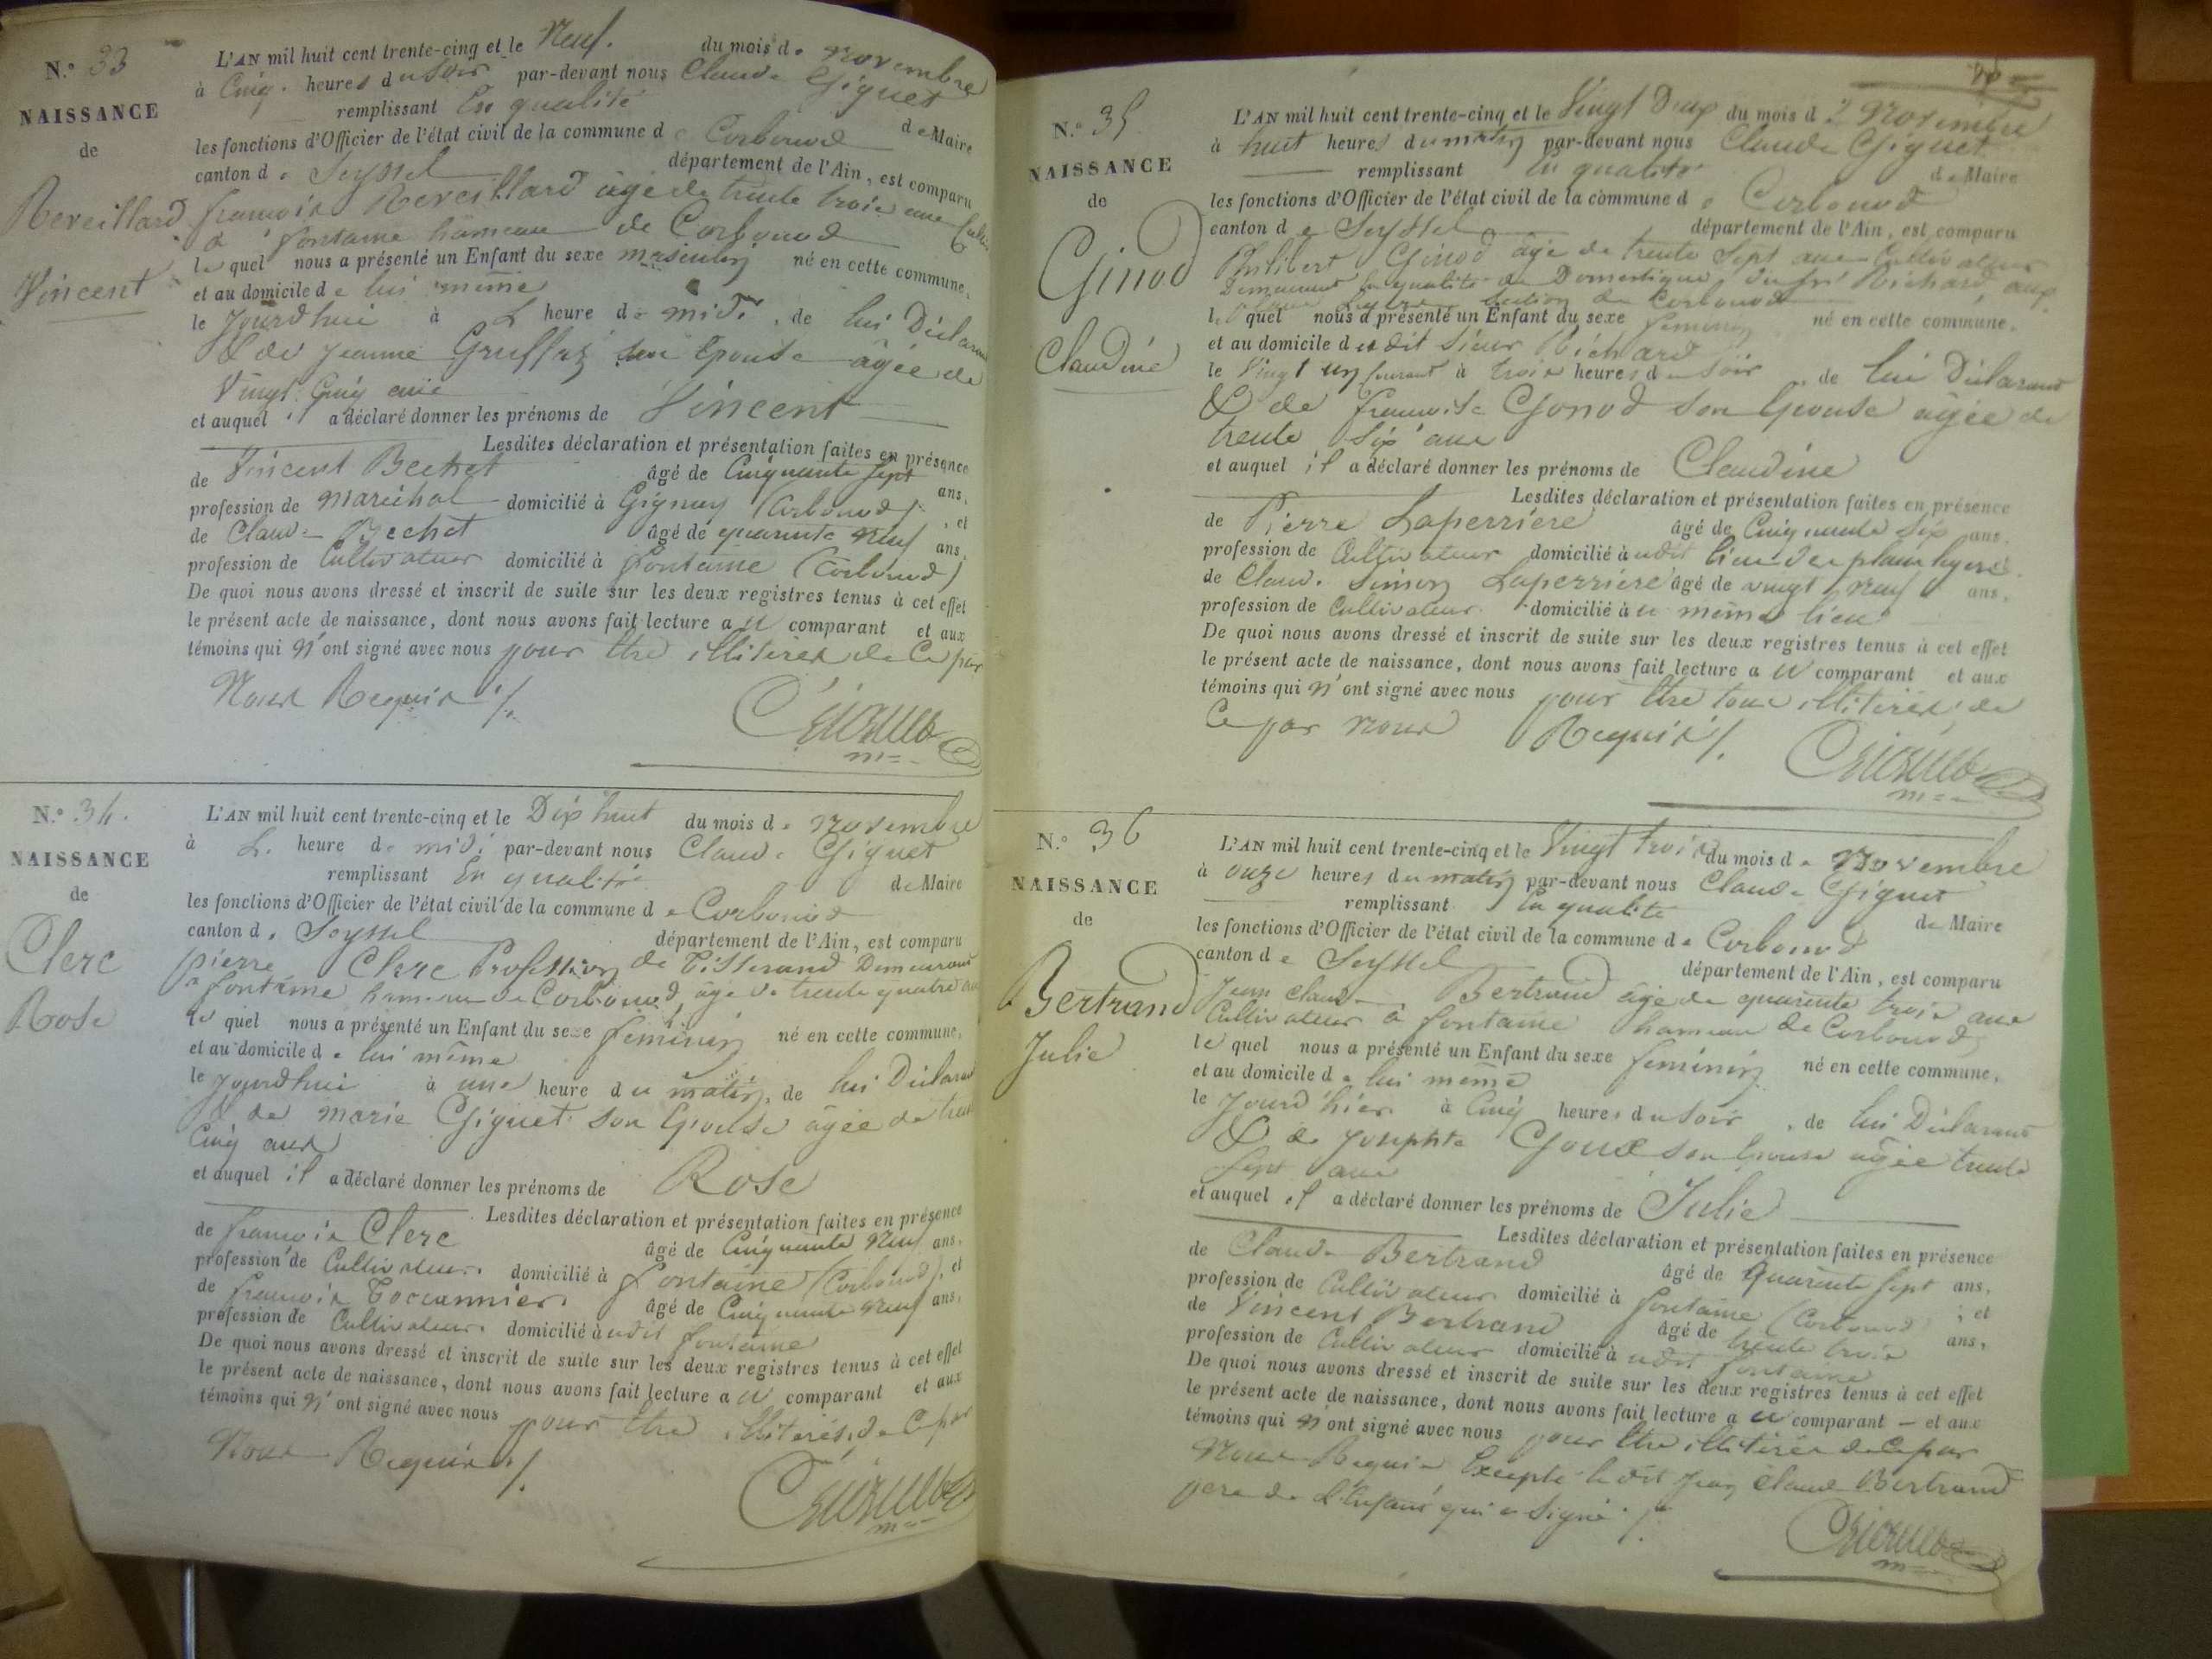 N.° 33
NAISSANCE
de
Reveillard
Vincent
L'AN mil huit cent trente-cinq et le Neuf. du mois de novembre
à Cinq heures du Soir par-devant nous Claude Giguet
remplissant En qualité de Maire
les fonctions d'Officier de l'état civil de la commune de Corbonod
canton de Seyssel département de l'Ain, est comparu
françois Reveillard âgé de trente trois ans
à fontaine hameau de Corbonod
le quel nous a présenté un Enfant du sexe masculin né en cette commune,
et au domicile de lui même
le jourdhui à heure de midi, de lui Déclarant
& de jeanne Gruffaz son Epouse âgée de
Vingt Cinq ans
et auquel il a déclaré donner les prénoms de Vincent
Lesdites déclaration et présentation faites en présence
de Vincent Bechet âgé de Cinquante Sept ans,
profession de maréchal domicilié à Gignez (Corbonod), et
de Claude Bechet âgé de quarante neuf ans,
profession de Cultivateur domicilié à fontaine (Corbonod)
De quoi nous avons dressé et inscrit de suite sur les deux registres tenus à cet effet
le présent acte de naissance, dont nous avons fait lecture au comparant et aux
témoins qui n'ont signé avec nous pour être illitérés de Ce par
Nous Requis ./.
Giguet
m=
N.° 34.
NAISSANCE
de
Clerc
Rose
L'AN mil huit cent trente-cinq et le Dix huit du mois de novembre
à heure de midi par-devant nous Claude Giguet
remplissant En qualité de Maire
les fonctions d'Officier de l'état civil de la commune de Corbonod
canton de Seyssel département de l'Ain, est comparu
pierre Clerc Profession de Tisserand Demeurant
à fontaine hameau de Corbonod, âgé de trente quatre ans
le quel nous a présenté un Enfant du sexe féminin né en cette commune,
et au domicile de lui même
le jourdhui à une heure du matin, de lui Déclarant
& de marie Giguet son Epouse âgée de trente
Cinq ans
et auquel il a déclaré donner les prénoms de Rose
Lesdites déclaration et présentation faites en présence
de françois Clerc âgé de Cinquante Neuf ans,
profession de Cultivateur domicilié à fontaine (Corbonod), et
de françois Tocannier âgé de Cinquante neuf ans,
profession de Cultivateur domicilié audit fontaine
De quoi nous avons dressé et inscrit de suite sur les deux registres tenus à cet effet
le présent acte de naissance, dont nous avons fait lecture au comparant et aux
témoins qui n'ont signé avec nous pour être illitérés de Ce par
Nous Requis ./.
Giguet
m=
N.° 35
NAISSANCE
de
Ginod
Claudine
L'AN mil huit cent trente-cinq et le Vingt Deux du mois de Novembre
à huit heures du matin par-devant nous Claude Giguet
remplissant En qualité de Maire
les fonctions d'Officier de l'état civil de la commune de Corbonod
canton de Seyssel département de l'Ain, est comparu
Philibert Ginod âgé de trente Sept ans Cultivateur
Demeurant En qualité de Domestique du sr Richard aux
section de Corbonod
le quel nous a présenté un Enfant du sexe feminin né en cette commune,
et au domicile dudit Sieur Richard
le Vingt un courant à trois heures du Soir, de lui Déclarant
& de françoise Gonod son Epouse âgée de
trente Six ans
et auquel il a déclaré donner les prénoms de Claudine
Lesdites déclaration et présentation faites en présence
de Pierre Laperriere âgé de Cinquante Six ans,
profession de Cultivateur domicilié audit lieu
de Claude Simon Laperriere âgé de vingt neuf ans,
profession de Cultivateur domicilié au même lieu
De quoi nous avons dressé et inscrit de suite sur les deux registres tenus à cet effet
le présent acte de naissance, dont nous avons fait lecture au comparant et aux
témoins qui n'ont signé avec nous pour être tous illitérés de
Ce par nous Requis ./.
Giguet
m=
N.° 36
NAISSANCE
de
Bertrand
Julie
L'AN mil huit cent trente-cinq et le Vingt trois du mois de Novembre
à onze heures du matin par-devant nous Claude Giguet
remplissant En qualité de Maire
les fonctions d'Officier de l'état civil de la commune de Corbonod
canton de Seyssel département de l'Ain, est comparu
Jean Claude Bertrand âgé de quarante trois ans
Cultivateur à fontaine hameau de Corbonod
le quel nous a présenté un Enfant du sexe féminin né en cette commune,
et au domicile de lui même
le jourd'hier à Cinq heures du Soir, de lui Déclarant
& de josephte Goux son Epouse âgée trente
Sept ans
et auquel il a déclaré donner les prénoms de Julie
Lesdites déclaration et présentation faites en présence
de Claude Bertrand âgé de quarante Sept ans,
profession de Cultivateur domicilié à fontaine (Corbonod), et
de Vincent Bertrand âgé de trente trois ans,
profession de Cultivateur domicilié audit fontaine
De quoi nous avons dressé et inscrit de suite sur les deux registres tenus à cet effet
le présent acte de naissance, dont nous avons fait lecture au comparant et aux
témoins qui n'ont signé avec nous pour être illitérés de Ce par
Nous Requis Excepté le dit jean Claude Bertrand
pere de l'Enfant qui a Signé ./.
Giguet
m=